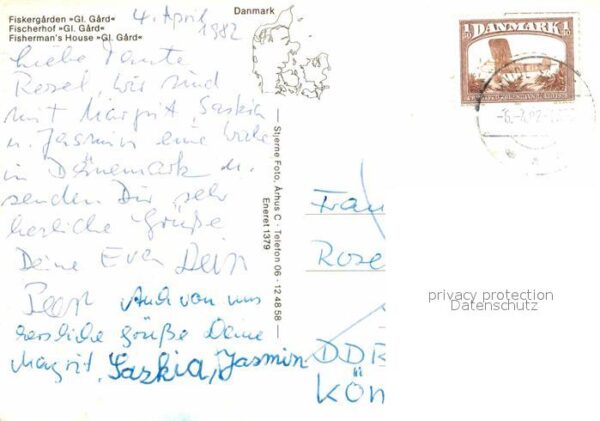 Fiskergården »Gl. Gård«
Fischerhof »Gl. Gård«
Fisherman's House »Gl. Gård«
Danmark
4. April 1982
Liebe Tante
Rosel, wir sind
mit Margrit, Saskia
u. Jasmin eine Woche
in Dänemark u.
senden Dir sehr
herzliche Grüße
Deine Eva Dein
Auch von uns
herzliche Grüße Deine
Margrit, Saskia, Jasmin
Stjerne Foto, Århus C - Telefon 06 - 12 48 58
Eneret 1379
1 50 DANMARK 1 50
Frau
Rose
DDR
KÖN
privacy protection
Datenschutz